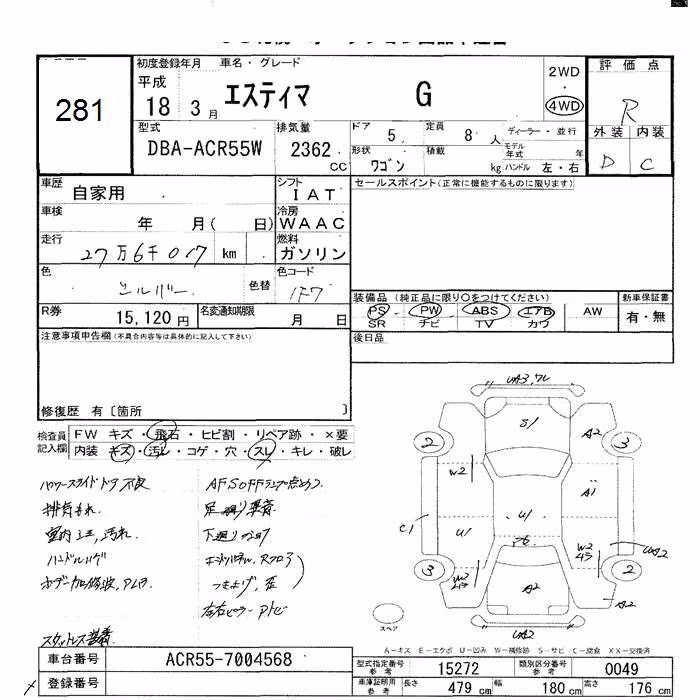 281
初度登録年月 車名・グレード
平成 18 3月 エスティマ G
2WD
4WD
評価点
R
外装 内装
D C
型式 排気量 ドア 5 定員 8人 ディーラー・並行
DBA-ACR55W 2362 CC 形状 ワゴン 積載 kg モデル年式 年
ハンドル 左・右
車歴 自家用 シフト IAT セールスポイント(正常に機能するものに限ります)
車検 年 月( 日) 冷房 WAAC
走行 27万6千017 km 燃料 ガソリン
色 シルバー 色替 色コード 1F7
R券 15,120円 名変通知期限 月 日
装備品(純正品に限り○をつけてください) 新車保証書
PS PW ABS エアB AW 有・無
SR ナビ TV カワ
後日品
注意事項申告欄(不具合内容等は具体的に記入して下さい)
修復歴 有[箇所 ]
検査員記入欄 FW キズ・飛石・ヒビ割・リペア跡・×要
内装 キズ・汚レ・コゲ・穴・スレ・キレ・破レ
パワースライドドア不良
排気もれ
室内シミ,汚れ
ハンドルハゲ
スタットレス装着
AFS OFFランプ点とう
足廻り異音
下廻りサビ
左右ピラー Pトビ
UA3,
S/
A2
2
3
W2
A1
C1
U/
U/
W2
UA2
3
2
A2
A2
UA2
スペア
A-キズ E-エクボ U-凹み W-補修跡 S-サビ C-腐食 XX-交換済
車台番号 ACR55-7004568
登録番号
型式指定番号 参考 15272 類別区分番号 参考 0049
車庫証明用 参考 長さ 479 cm 幅 180 cm 高さ 176 cm